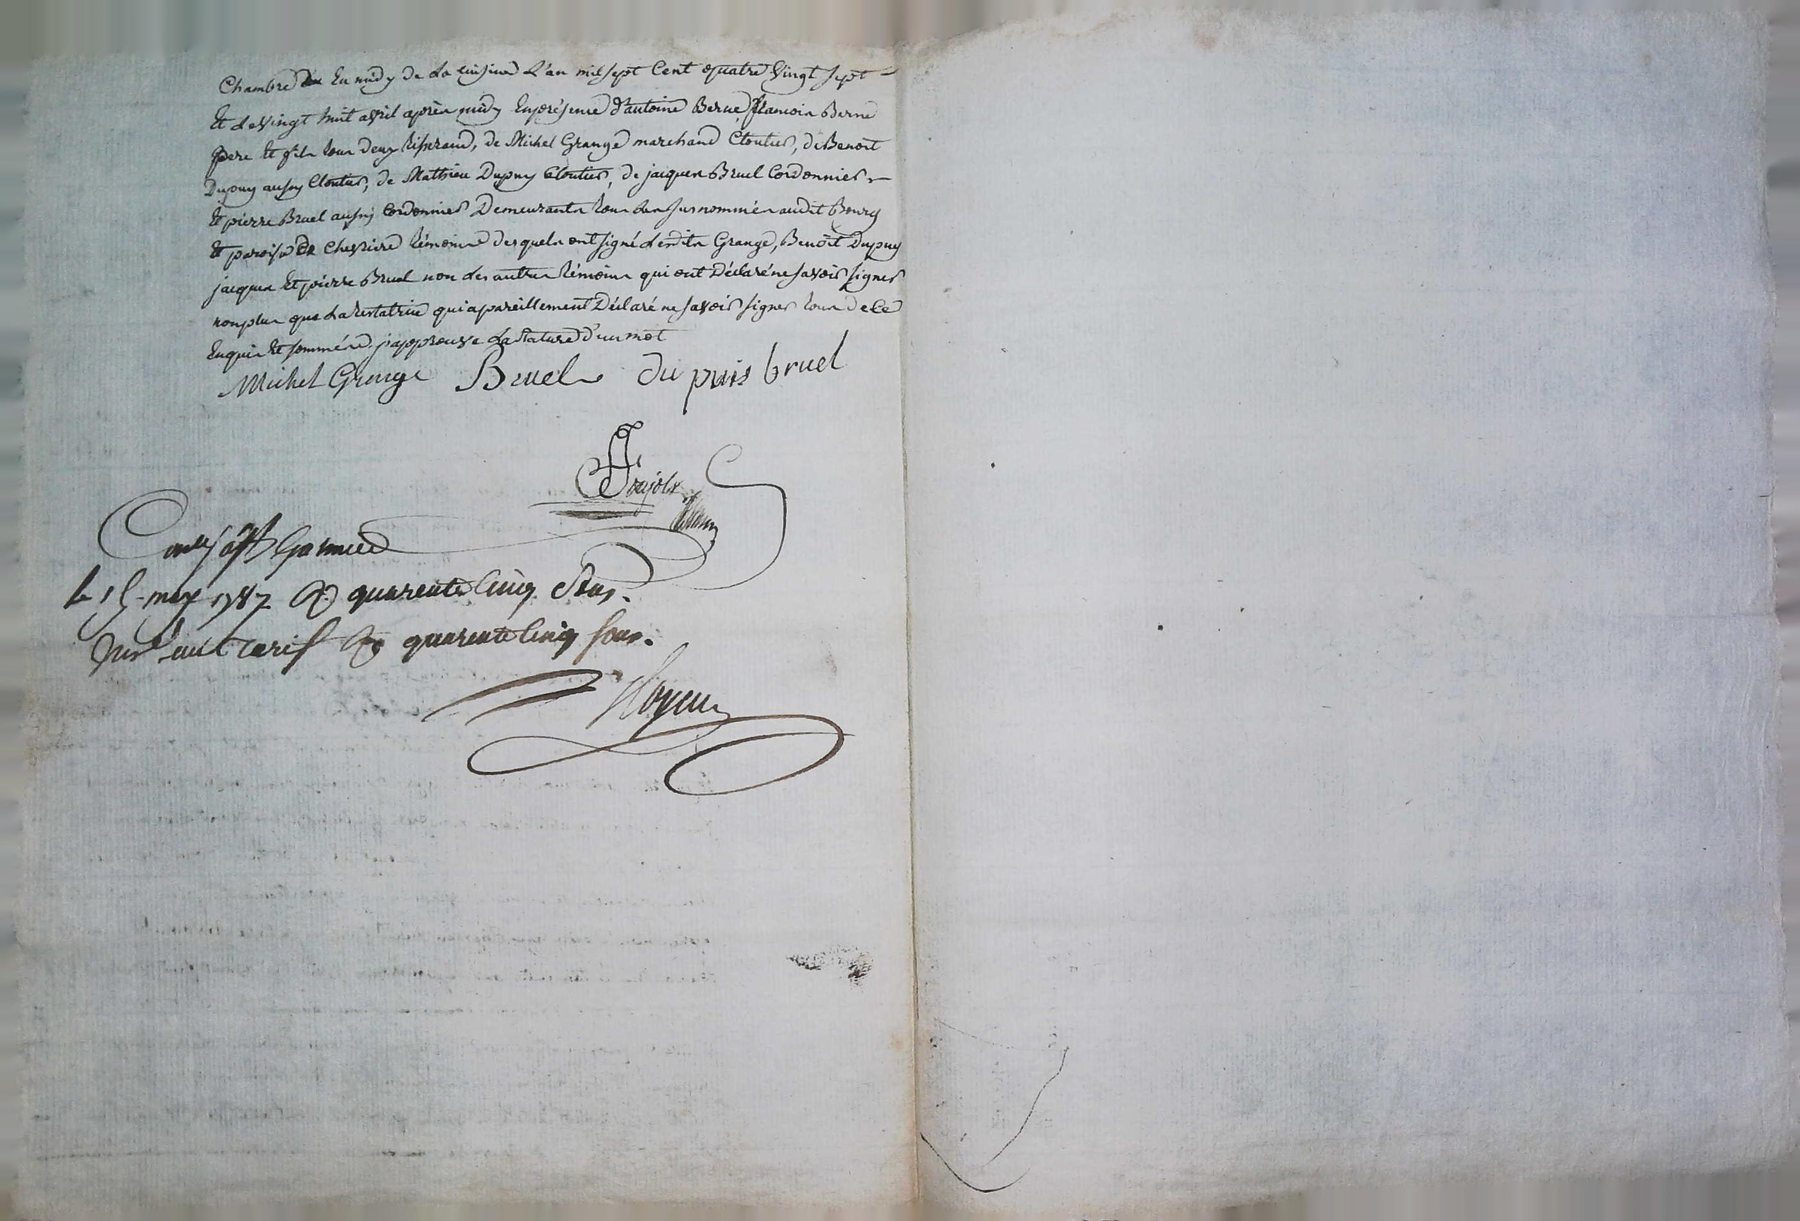 Chambre du en midy de la Cuisine L'an mil sept Cent quatre Vingt sept
et le vingt huit avril après midy En présence d'antoine Berne, francois Berne
pere et fils tous deux tisserand, de Michel Grange marchand Cloutier, de Benoit
Dupuy aussy Cloutier, de Mathieu Dupuy Cloutier, de jacques Bruel Cordonnier
et pierre Bruel aussy Cordonnier Demeurants tous les susnommés audit Bourg
et paroisse de Chevriere témoins desquels ont signé lesdits Grange, Benoit Dupuy
jacques et pierre Bruel non les autres témoins qui ont Déclaré ne savoir signer
non plus que La testatrice qui a pareillement Déclaré ne savoir signer tous de ce
Enquis et sommés. j'approuve La Rature d'un mot
Michel Grange Bruel du puis bruel
Conlé
le 15 may 1787 quarente Cinq sous.
tarif quarente Cinq sous.